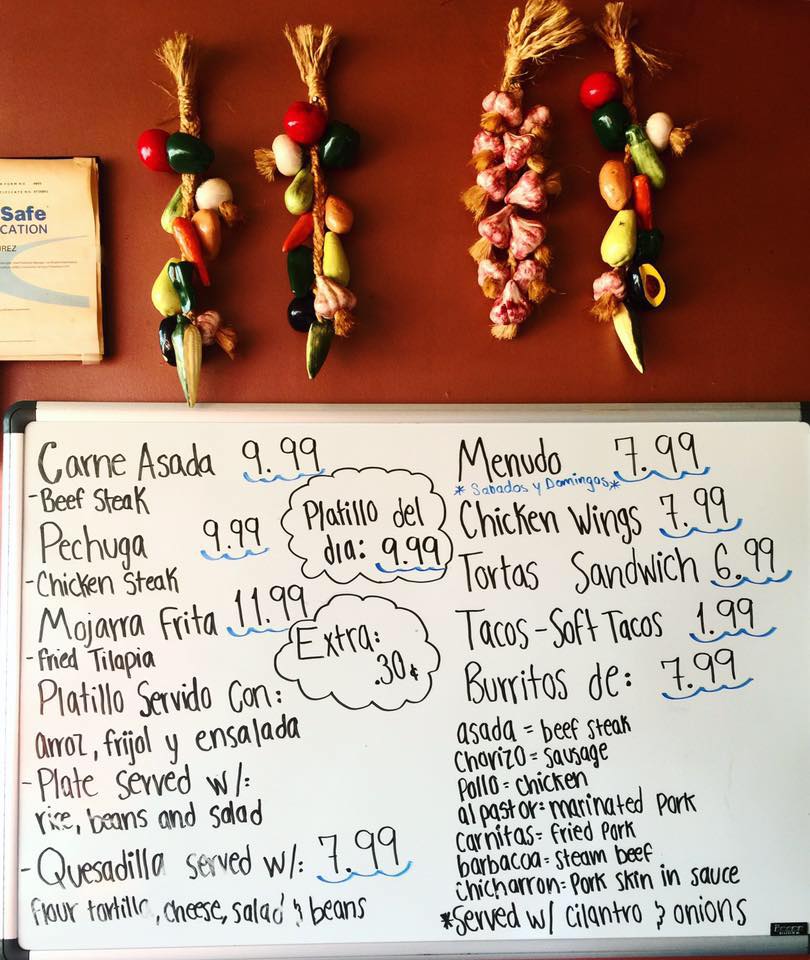 Safe
CATION
IREZ
Carne Asada 9.99
-Beef Steak
Pechuga 9.99
-Chicken Steak
Mojarra Frita 11.99
-Fried Tilapia
Platillo Servido Con:
arroz, frijol y ensalada
-Plate served w/:
rice, beans and salad
-Quesadilla served w/: 7.99
flour tortilla, cheese, salad & beans
Platillo del
dia: 9.99
Extra:
.30¢
Menudo 7.99
*Sabados y Domingos*
Chicken Wings 7.99
Tortas Sandwich 6.99
Tacos-Soft Tacos 1.99
Burritos de: 7.99
asada = beef steak
Chorizo = sausage
Pollo = chicken
al pastor = marinated Pork
Carnitas = fried Pork
barbacoa = steam beef
Chicharron = Pork skin in sauce
*Served w/ cilantro & onions